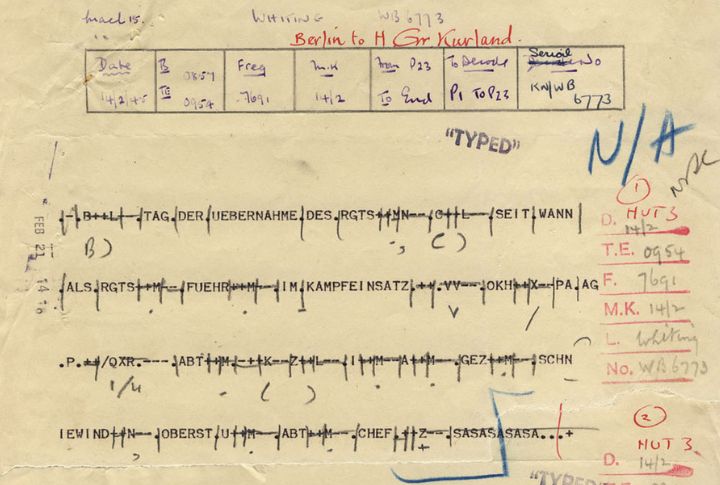 WHITING WB6773
Berlin to H Grr Kurland.
Date B 0857 Freq M.K From P23 To Decode Serial No
14/2/45 TE 0954 7691 14/2 To End P1 To P23 KN/WB 6773
"TYPED"
N/A
FEB 21 14 16
.-.B++L--.TAG.DER.UEBERNAHME.DES.RGTS++MN--.C++L--.SEIT.WANN
B) ., ( )
.ALS.RGTS++M--.FUEHR++M--.IM.KAMPFEINSATZ.++.VV--.OKH++X--PA.AG
. . V /
.P.++/QXR.---.ABT++M.-++K--Z++L--.I++M--A++M--.GEZ++M--.SCHN
1/4 . ( ) . . .
IEWIND++N--.OBERST.U++M--.ABT++M--.CHEF.++Z--.SASASASASA...+
, . . +
1
D. HUT 3 14/2
T.E. 0954
F. 7691
M.K. 14/2
L. Whiting
No. WB6773
2
HUT 3.
D. 14/2
"TYPED"